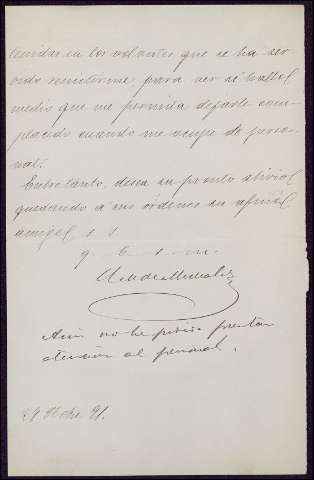 tenidas en los volantes que se ha ser
vido remitirme, para ver si hallo el
medio que me permita dejarle com-
placido cuando me ocupe de perso-
nal.
Entretanto, desea su pronto alivio
quedando a sus órdenes su afmo
amigo, s. s.
q. b. s. m.
Aún no he podido prestar
atención al personal.
29 91.